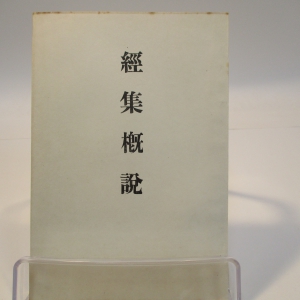 經集概說